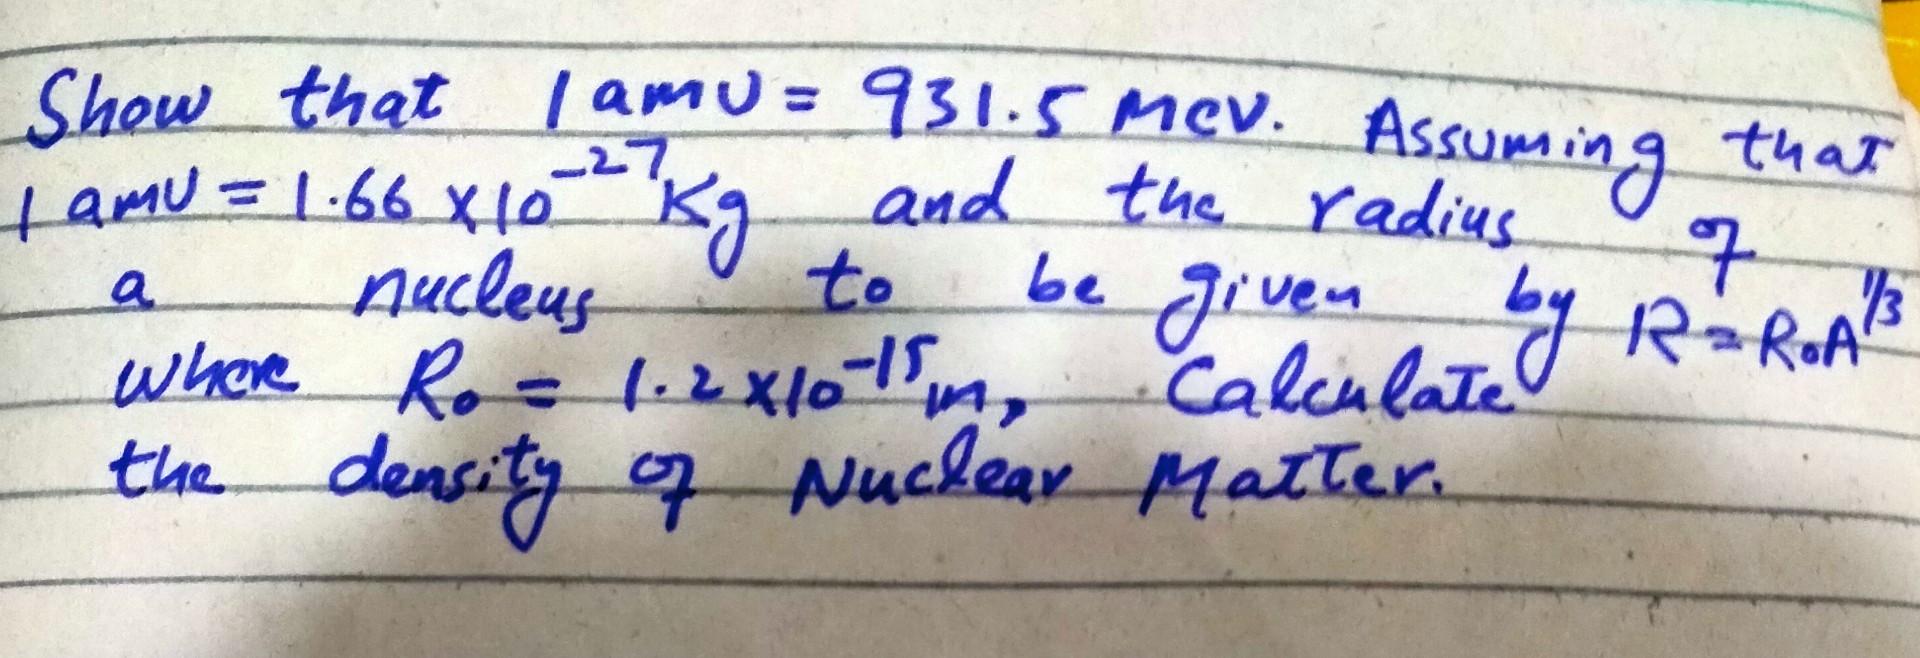 Show that 1 amu = 931.5 Mev. Assuming that
1 amu = 1.66 x10⁻²⁷Kg and the radius of
a nucleus to be given by R=R₀A^1/3
where R₀ = 1.2 x10⁻¹⁵m, Calculate
the density of Nuclear Matter.